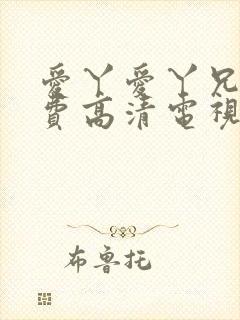 愛丫愛丫兄
費高清電視
布魯托